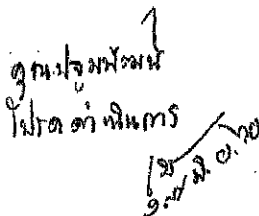 คุณปฐมพัฒน์
โปรดดำเนินการ
มิ.ย.